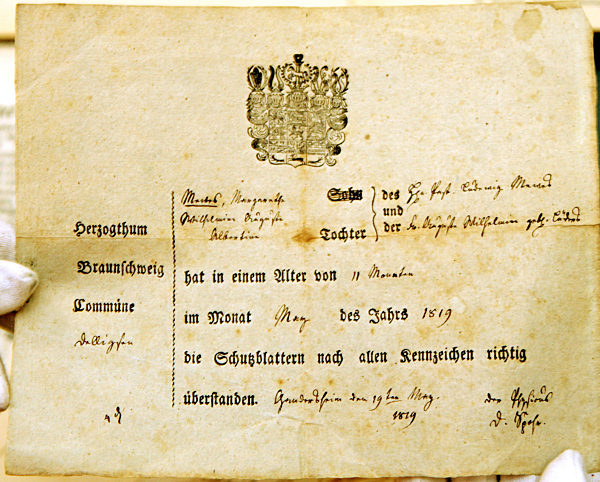 Herzogthum
Braunschweig
Commüne
Delligsen
Mewes, Margarethe
Wilhelmine Auguste
Albertine
Sohn
Tochter
des H. Past. Ludewig Mewes
und
der Fr. Auguste Wilhelmine geb. Lüders
hat in einem Alter von 11 Monaten
im Monat May des Jahrs 1819
die Schutzblattern nach allen Kennzeichen richtig
überstanden. Gandersheim den 19ten May.
1819
der Physicus
D. Spohr.